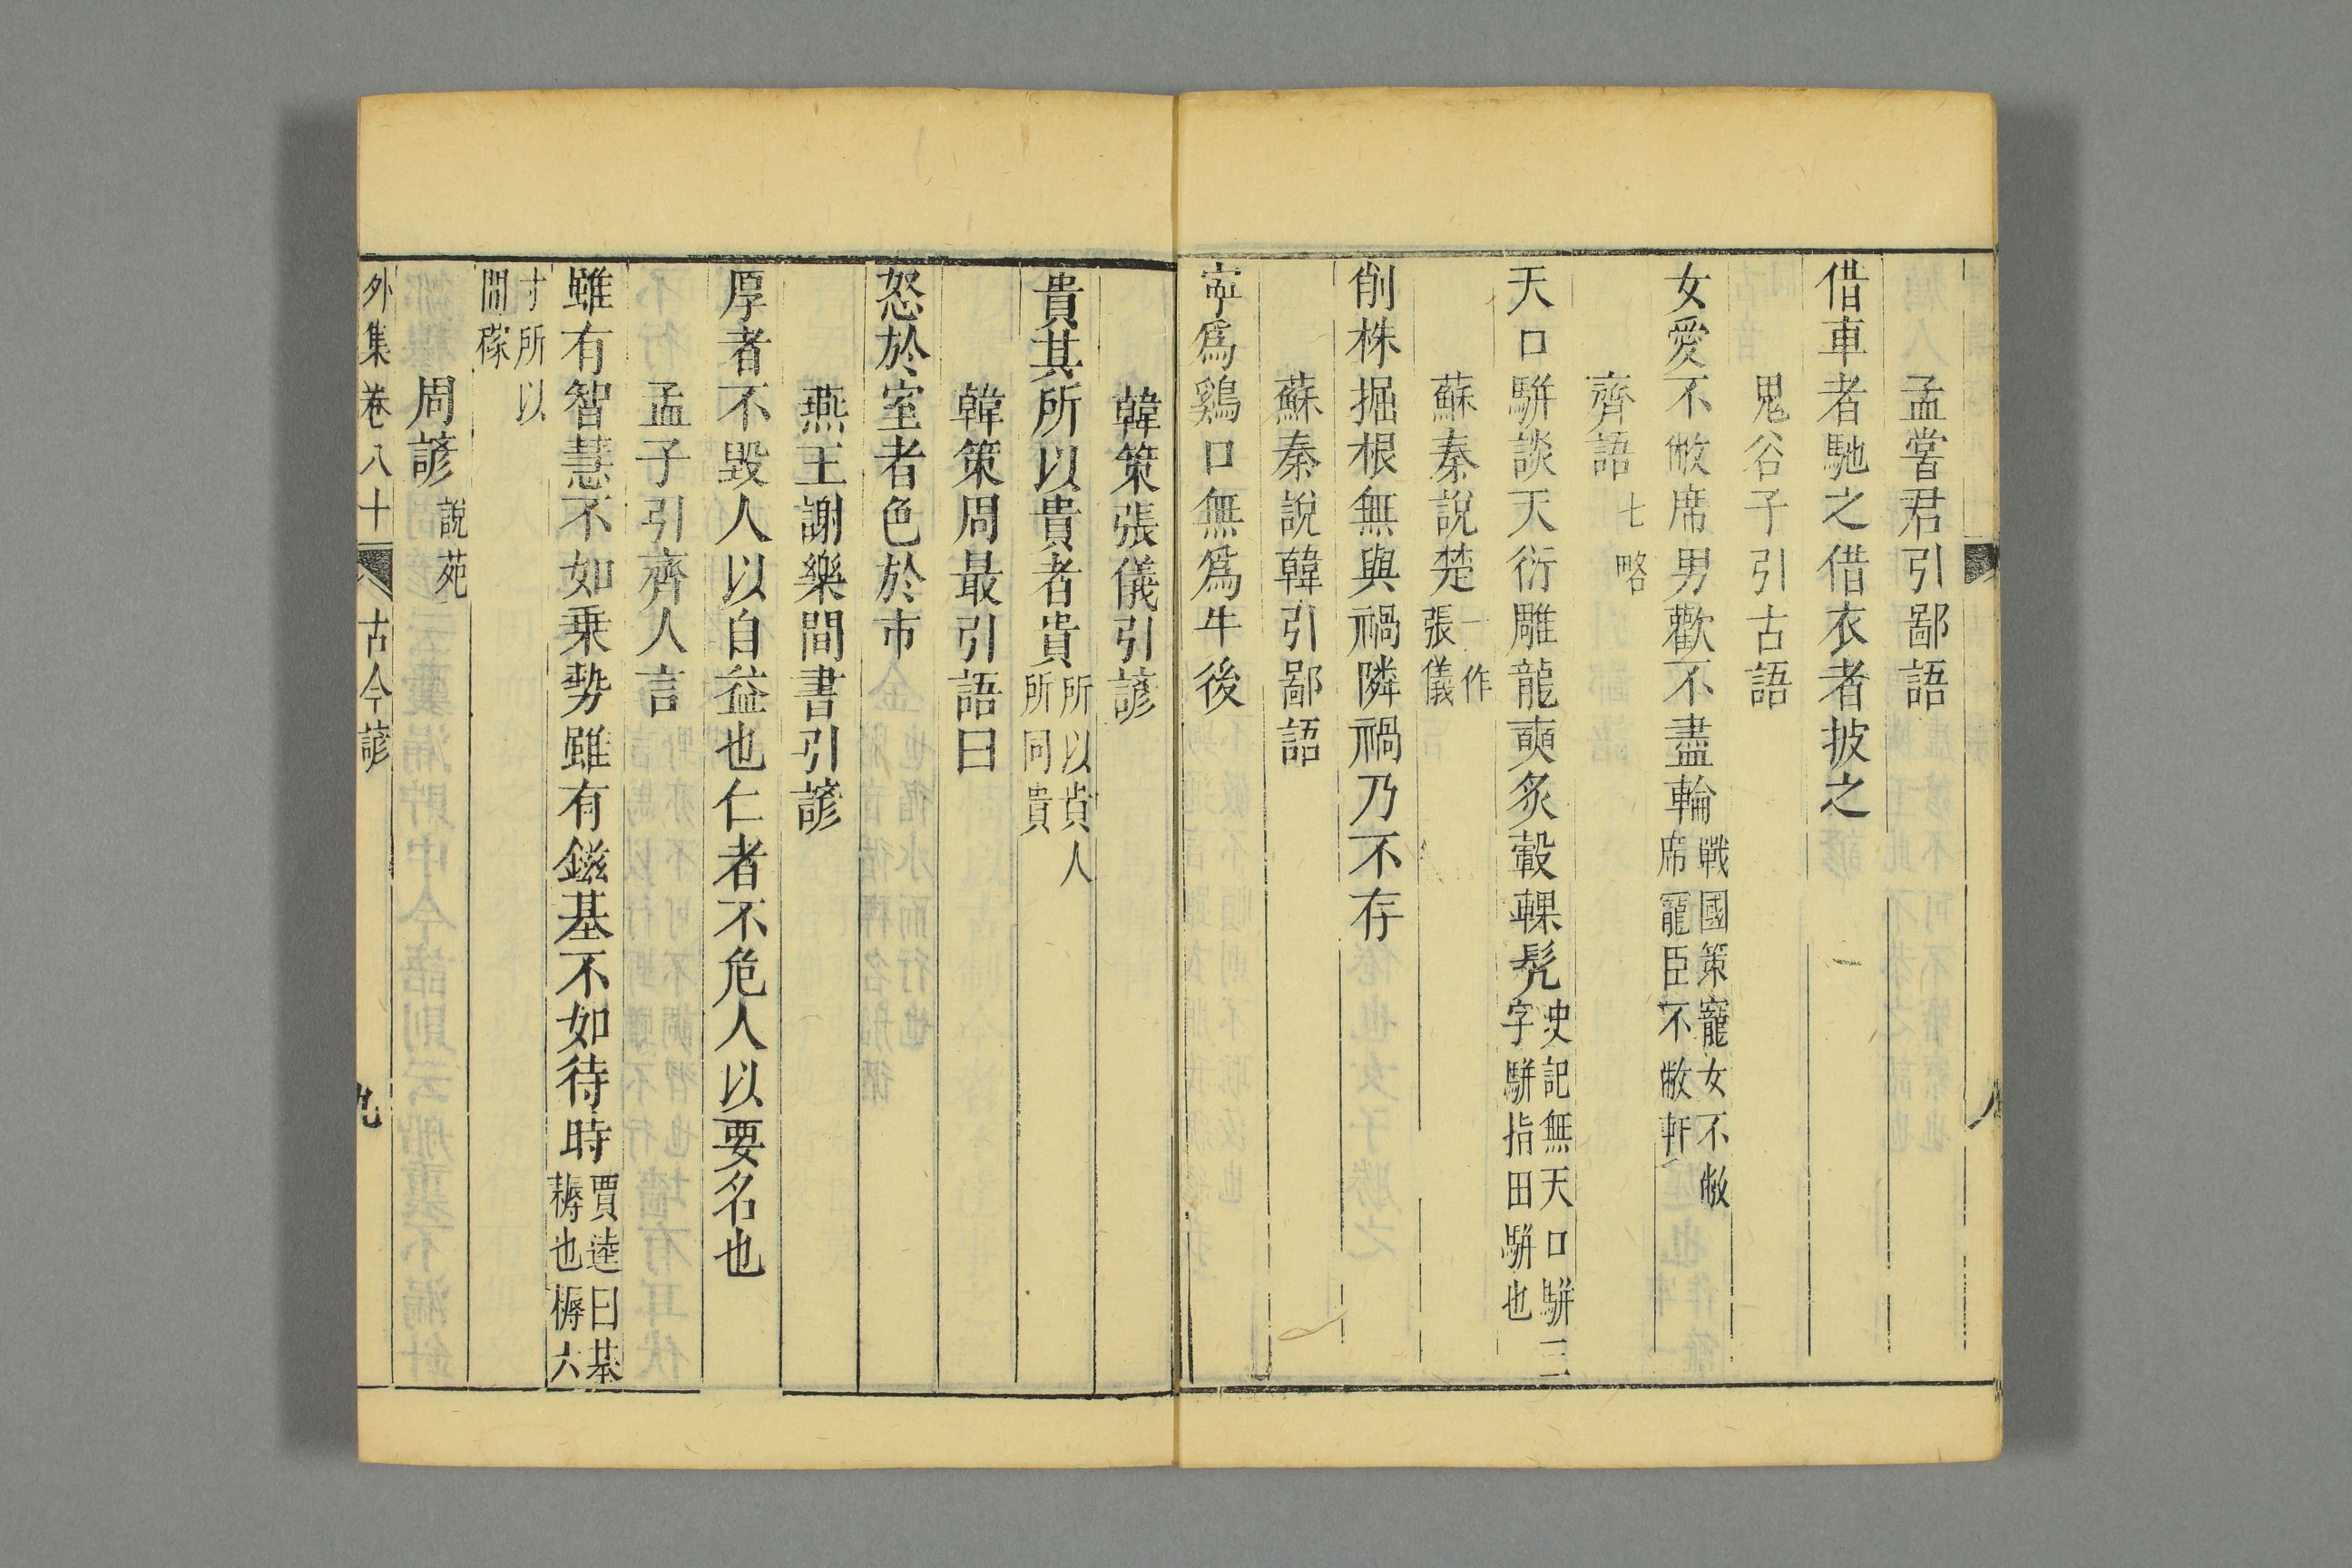 孟嘗君引鄙語
借車者馳之借衣者披之
鬼谷子引古語
女愛不敝席男歡不盡輪戰國策寵女不敝
席寵臣不敝軒
齊語七略
天口駢談天衍雕龍奭炙轂輠髡史記無天口駢三
字駢指田駢也
蘇秦說楚一作
張儀
削株掘根無與禍隣禍乃不存
蘇秦說韓引鄙語
寧爲鷄口無爲牛後
韓策張儀引諺
貴其所以貴者貴所以貴人
所同貴
韓策周最引語曰
怒於室者色於市
燕王謝樂間書引諺
厚者不毀人以自益也仁者不危人以要名也
孟子引齊人言
雖有智慧不如乗勢雖有鎡基不如待時賈逵曰基
耨也耨六
寸所以
間稼
周諺說苑
外集卷八十 古今諺 九